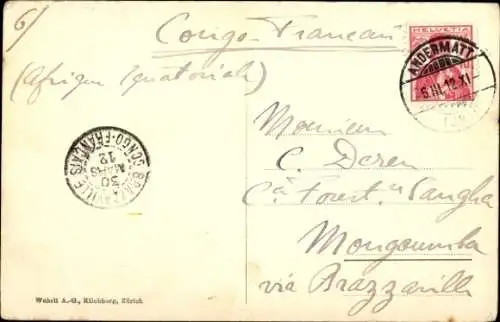 6/
Congo-Français
(Afrique Equatoriale)
HELVETIA
10
ANDERMATT
6.III.12.XI
BRAZZAVILLE
30
MARS
12
CONGO-FRANÇAIS
Monsieur
C. Deren
Cie Forest. Sangha
Mongoumba
via Brazzaville
Wehrli A.-G., Kilchberg, Zürich